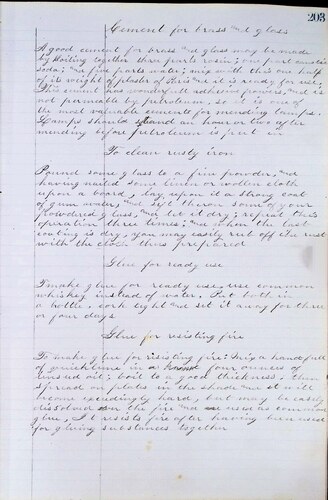 203
Cement for brass and glass
A good cement for brass and glass may be made
by boiling together three parts rosin; one part caustic
soda; and five parts water; mix with this one half
of its weight of plaster of Paris and it is ready for use;
This cement has wonderful adhesive powers, and is
not permeable by petroleum, so it is one of
the most valuable cements for mending lamps.
Lamps should stand an hour or two after
mending before petroleum is put in
To clean rusty iron
Pound some glass to a fine powder, and
having nailed some linen or wollen cloth
upon a board, lay upon it a strong coat
of gum water, and sift thereon some of your
powdered glass, and let it dry; repeat this
operation three times; and when the last
coating is dry, you may easily rub off the rust
with the cloth thus prepared
Glue for ready use
To make glue for ready use, use common
whiskey instead of water. Put both in
a bottle, cork tight and set it away for three
or four days
Glue for resisting fire
To make glue for risisting fire: mix a handfull
of quicklime in four ounces of
linseed oil; boil to a good thickness, then
spread on plates in the shade and it will
become exceedingly hard, but may be easily
dissolved over the fire and used as common
glue. It resists fire after having been used
for gluing substances together